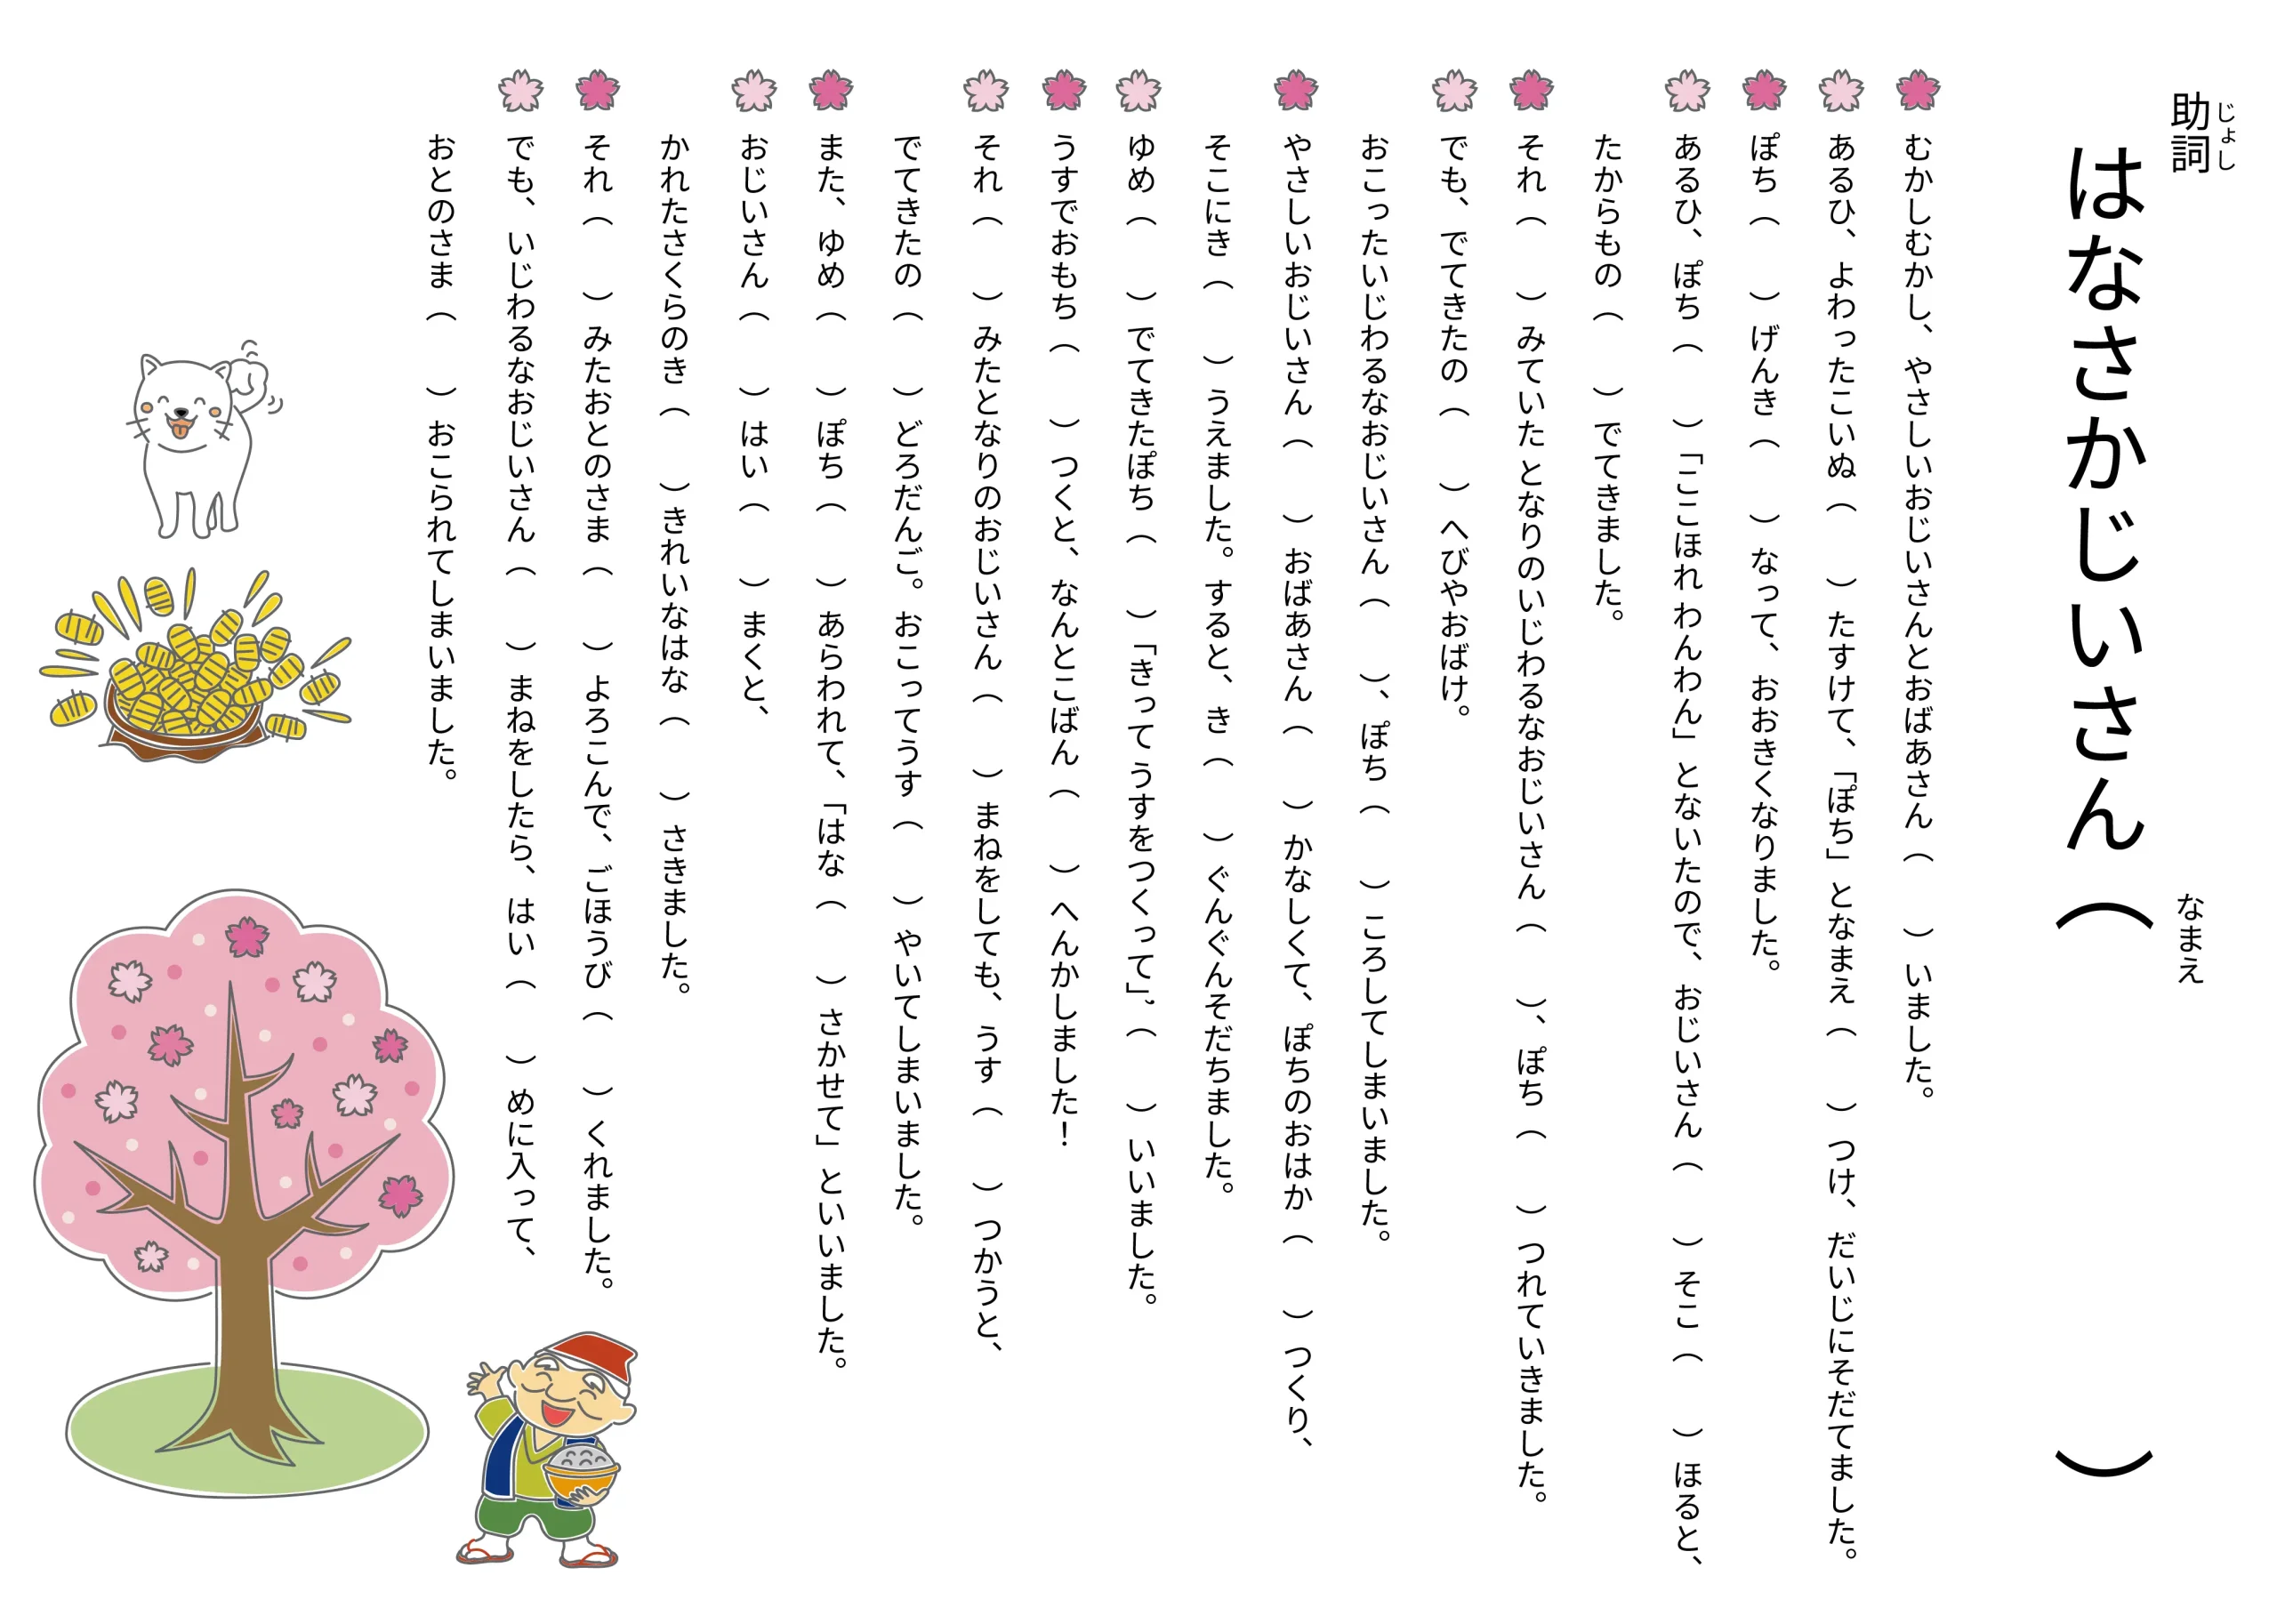 じょし
助詞
はなさかじいさん（　　　）
なまえ
むかしむかし、やさしいおじいさんとおばあさん（　　）いました。
あるひ、よわったこいぬ（　　）たすけて、「ぽち」となまえ（　　）つけ、だいじにそだてました。
ぽち（　　）げんき（　　）なって、おおきくなりました。
あるひ、ぽち（　　）「ここほれ わんわん」とないたので、おじいさん（　　）そこ（　　）ほると、
たからもの（　　）でてきました。
それ（　　）みていた となりのいじわるなおじいさん（　　）、ぽち（　　）つれていきました。
でも、でてきたの（　　）へびやおばけ。
おこったいじわるなおじいさん（　　）、ぽち（　　）ころしてしまいました。
やさしいおじいさん（　　）おばあさん（　　）かなしくて、ぽちのおはか（　　）つくり、
そこにき（　　）うえました。すると、き（　　）ぐんぐんそだちました。
ゆめ（　　）でてきたぽち（　　）「きって うすをつくって」。（　　）いいました。
うすでおもち（　　）つくと、なんとこばん（　　）へんかしました！
それ（　　）みたとなりのおじいさん（　　）まねをしても、うす（　　）つかうと、
でてきたの（　　）どろだんご。おこってうす（　　）やいてしまいました。
また、ゆめ（　　）ぽち（　　）あらわれて、「はな（　　）さかせて」といいました。
おじいさん（　　）はい（　　）まくと、
かれたさくらのき（　　）きれいなはな（　　）さきました。
それ（　　）みたおとのさま（　　）よろこんで、ごほうび（　　）くれました。
でも、いじわるなおじいさん（　　）まねをしたら、はい（　　）めに入って、
おとのさま（　　）おこられてしまいました。